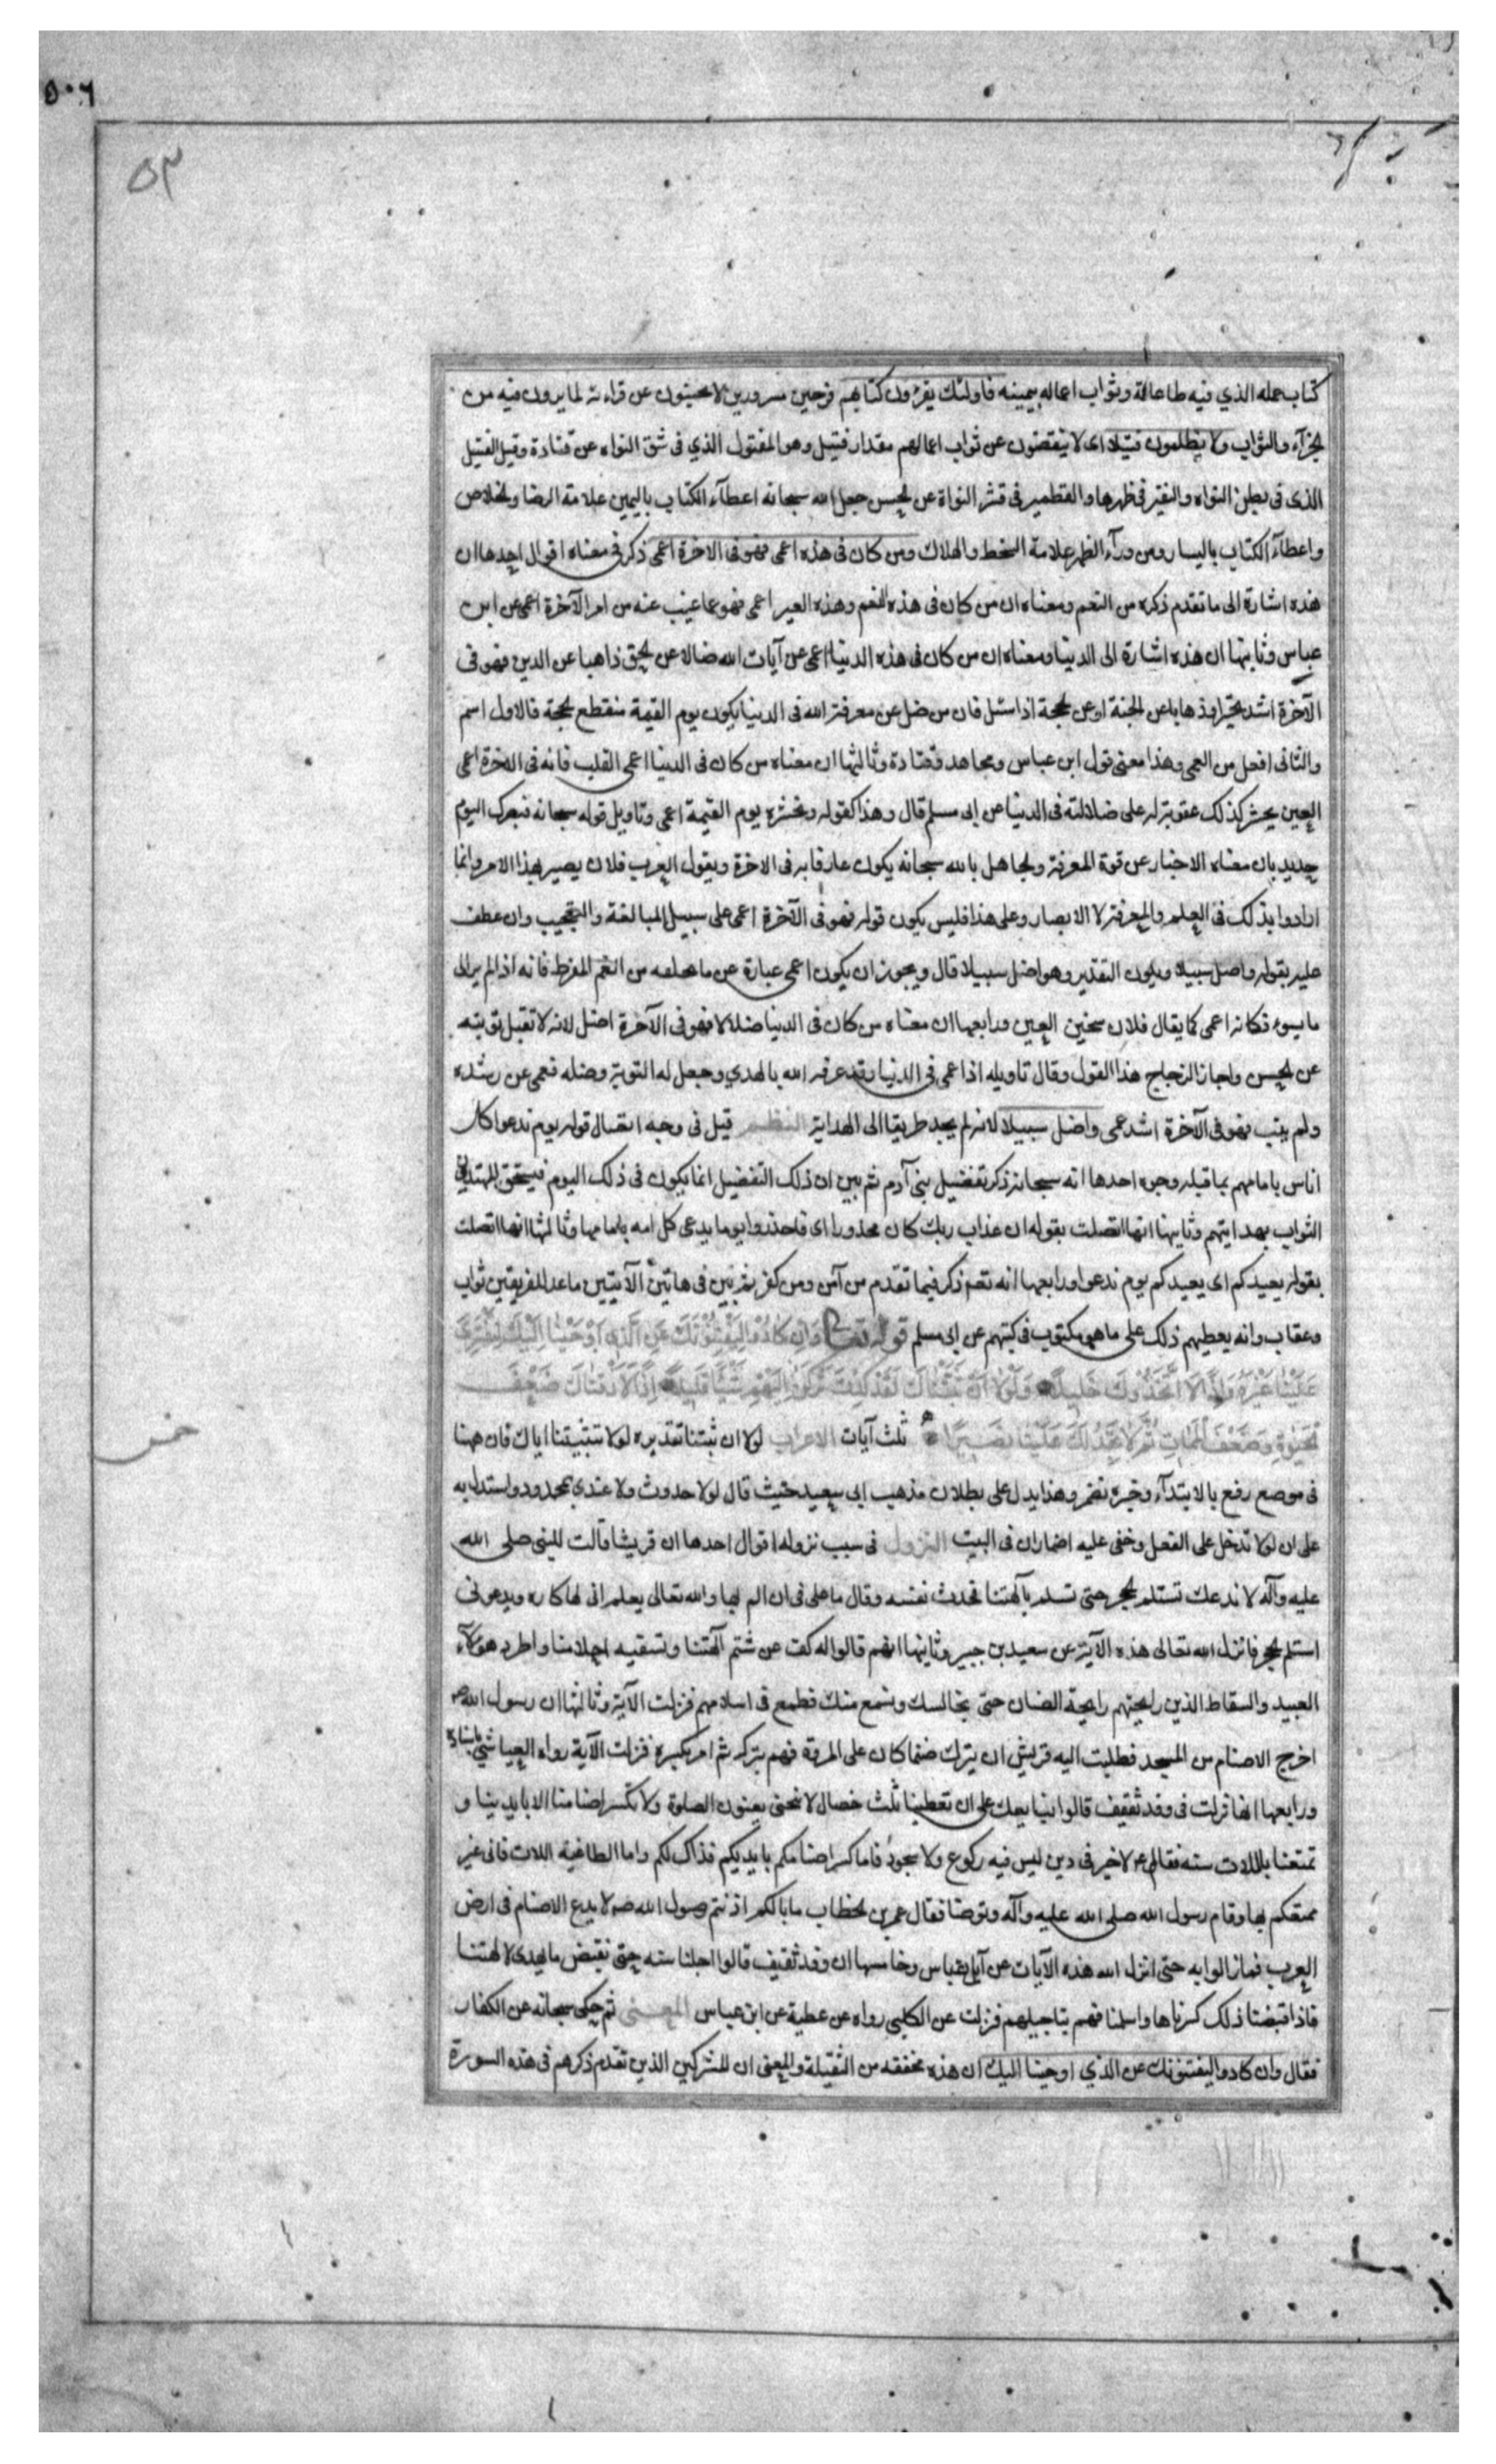 ٥٠٦
٥٣
كتاب عمله الذي فيه طاعاته وثواب اعماله بيمينه فاولئك يقرؤن كتابهم فرحين مسرورين لا يجبنون عن قراءته لما يرون فيه من
الجزآء والثواب ولا يظلمون فتيلا اى لا ينقصون عن ثواب اعمالهم مقدار فتيل وهو المفتول الذي في شق النواه عن قتادة وقيل الفتيل
الذى فى بطن النواه والنقير فى ظهرها والقطمير فى قشر النواة عن الحسن جعل الله سبحانه اعطآء الكتاب باليمين علامة الرضا والخلاص
واعطآء الكتاب باليسار ومن ورآء الظهر علامة السخط والهلاك ومن كان فى هذه اعمى فهو فى الاخرة اعمى ذكر فى معناه اقوال احدها ان
هذه اشارة الى ما تقدم ذكره من النعم ومعناه ان من كان فى هذه النعم وهذه العبر اعمى فهو عما غيب عنه من امر الآخرة اعمى عن ابن
عباس وثانيها ان هذه اشارة الى الدنيا ومعناه ان من كان فى هذه الدنيا اعمى عن آيات الله ضالا عن الحق ذاهبا عن الدين فهو فى
الآخرة اشد تحيرا وذهابا عن الجنة او عن الحجة اذا سئل فان من ضل عن معرفة الله فى الدنيا يكون يوم القيمة منقطع الحجة فالاول اسم
والثانى افعل من العمى وهذا معنى قول ابن عباس ومجاهد وقتادة وثالثها ان معناه من كان فى الدنيا اعمى القلب فانه فى الاخرة اعمى
العين يحشر كذلك عقوبة له على ضلالته فى الدنيا عن ابى مسلم قال وهذا كقوله ونحشره يوم القيمة اعمى وتاويل قوله سبحانه فبصرك اليوم
حديد بان معناه الاخبار عن قوة المعرفة والجاهل بالله سبحانه يكون عارفا به فى الاخرة ويقول العرب فلان يصير بهذا الامر وانما
ارادوا بذلك فى العلم والمعرفة لا الابصار وعلى هذا فليس يكون قوله فهو فى الآخرة اعمى على سبيل المبالغة والتعجب وان عطف
عليه بقوله واضل سبيلا ويكون التقدير وهو اضل سبيلا قال ويجوز ان يكون اعمى عبارة عن ما يلحقه من الغم المفرط فانه اذا لم ير الى
ما يسوءه فكانه اعمى كما يقال فلان سخين العين ورابعها ان معناه من كان فى الدنيا ضلالا فهو فى الآخرة اضل لانه لا تقبل توبته
عن الحسن واجاز الزجاج هذا القول وقال تاويله اذا عمى فى الدنيا وقد عرفه الله بالهدي وجعل له التوبة وصله فعمى عن رشده
ولم يتب فهو فى الآخرة اشد عمى واضل سبيلا لانه لم يجد طريقا الى الهداية النظم قيل فى وجه اتصال قوله يوم ندعوا كل
اناس بامامهم بما قبله وجوه احدها انه سبحانه ذكر تفضيل بنى آدم ثم بين ان ذلك التفضيل انما يكون فى ذلك اليوم فيستحق المهتدي
الثواب بهدايتهم وثانيها انها اتصلت بقوله ان عذاب ربك كان محذورا اى فاحذروا يوما يدعى كل امه بامامها وثالثها انها اتصلت
بقوله يعيدكم اى يعيدكم يوم ندعوا ورابعها انه تعم ذكر فيما تقدم من آمن ومن كفر ثم بين فى هاتين الآيتين ما اعد للفريقين ثواب
وعقاب وانه يعطيهم ذلك على ما هو مكتوب فى كتبهم عن ابى مسلم قوله تعالى وَاِن كَادُوا لَيَفْتِنُونَكَ عَنِ الَّذِى اَوْحَيْنا اِلَيْكَ لِتَفْتَرِىَ
عَلَيْنا غَيْرَهُ وَاِذًا لَاتَّخَذُوكَ خَليلًا وَلَوْلا اَنْ ثَبَّتْناكَ لَقَدْ كِدْتَ تَرْكَنُ اِلَيْهِمْ شَيْئًا قَليلًا اِذًا لَاَذَقْناكَ ضِعْفَ
الْحَيٰوةِ وَضِعْفَ الْمَماتِ ثُمَّ لا تَجِدُ لَكَ عَلَيْنا نَصيرًا ثلث آيات الاعراب لولا ان ثبتنا تقديره لولا تثبيتنا اياك فان ههنا
فى موضع رفع بالابتدآء وخبره نضمر وهذا يدل على بطلان مذهب ابى سعيد حيث قال لولا حدوث ولا عندي بمحدود واستدل به
على ان لولا تدخل على الفعل وخفى عليه اضمار ان فى البيت النزول فى سبب نزوله اقوال احدها ان قريشا قالت للنبى صلى الله
عليه وآله لا ندعك تستلم الحجر حتى تسلم بآلهتنا فحدث نفسه وقال ما على فى ان الم بها والله تعالى يعلم انى لها كاره ويدعونى
استلم الحجر فانزل الله تعالى هذه الآية عن سعيد بن جبير وثانيها انهم قالوا له كف عن شتم آلهتنا وتسفيه احلامنا واطرد هؤلآء
العبيد والسقاط الذين رايحتهم رايحة الضان حتى نجالسك ونسمع منك فطمع فى اسلامهم فنزلت الآية وثالثها ان رسول الله ص
اخرج الاصنام من المسجد فطلبت اليه قريش ان يترك صنما كان على المروة فهم بتركه ثم امر بكسره فنزلت الآية رواه العياشى باسناده
ورابعها انها نزلت فى وفد ثقيف قالوا نبايعك على ان تعطينا ثلث خصال لا ننحنى يعنون الصلوة ولا نكسر اصنامنا الا بايدينا و
تمتعنا باللات سنه فقال ع لا خير فى دين ليس فيه ركوع ولا سجود فاما كسر اصنامكم بايديكم فذاك لكم واما الطاغية اللات فانى غير
ممتعكم بها وقام رسول الله صلى الله عليه وآله وتوضا فقال عمر بن الخطاب ما بالكم اذيتم رسول الله ص لا يدع الاصنام فى ارض
العرب فما زالوا به حتى انزل الله هذه الآيات عن ابن عباس وخامسها ان وفد ثقيف قالوا اجلنا سنه حتى نقبض ما يهدى لالهتنا
فاذا قبضنا ذلك كسرناها واسلمنا فهم بتاجيلهم فنزلت عن الكلبى رواه عن عطية عن ابن عباس المعنى ثم حكى سبحانه عن الكفار
فقال وان كادوا ليفتنونك عن الذي اوحينا اليك ان هذه مخففه من الثقيلة والمعنى ان المشركين الذين تقدم ذكرهم فى هذه السورة